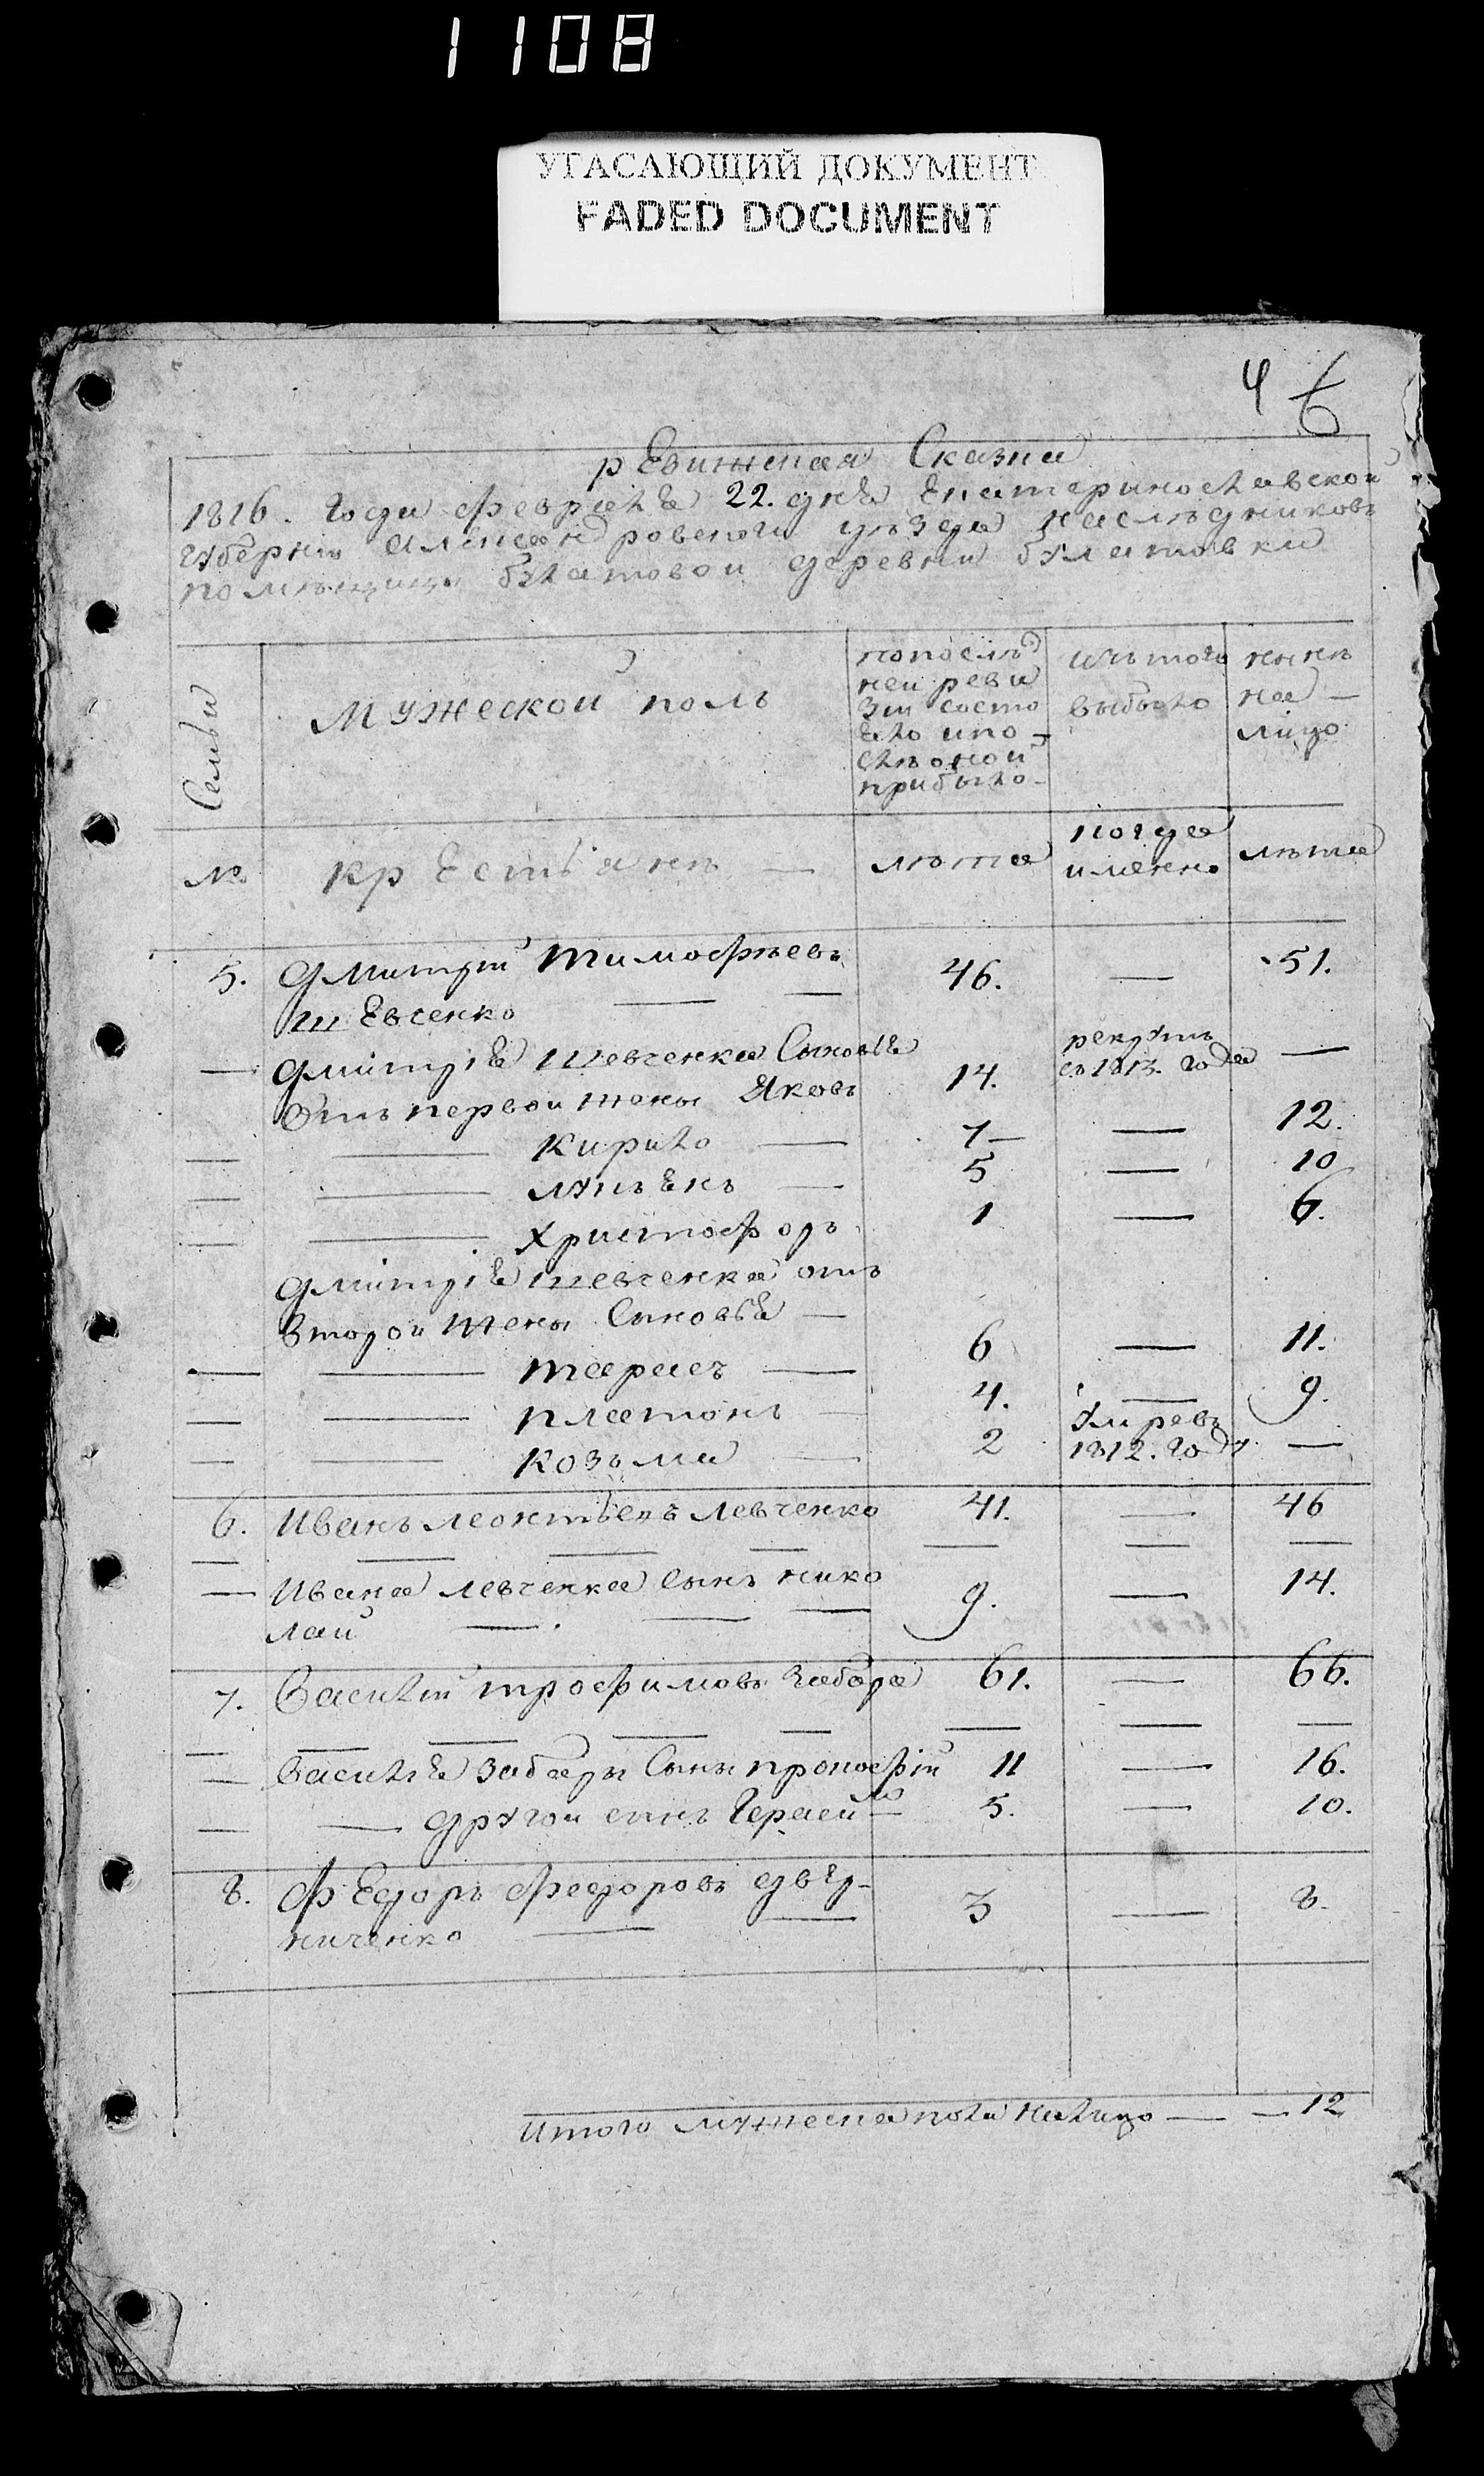 1108
УГАСАЮЩИЙ ДОКУМЕНТ
FADED DOCUMENT
4 6
ревижская Сказка
1816. года февраля 22. дня Екатеринославской
губерніи александровскаго уѣзда наслѣдниковъ
помѣщицы булатовои деревни булатовки
Семьи
Мужескои полъ
попослѣд
неи реви
зіи состо
яло ипо
слѣонои
прибыло
исътого
выбыло
нынѣ
на
лицо
№ крестьянѣ — лѣта
когда
имянно
лѣта
5. дмитріи тимофѣевъ 46. — 51.
шевченко
— дмитрія шевченка Сыновья рекрутъ
въ 1813. года —
Отъ первои жены Яковъ 14.
— Кирило — 7 — 12.
— лукъянъ — 5 — 10
— христофоръ 1 — 6.
дмитрія шевченка отъ
второи жены Сыновья —
— тарасъ — 6 — 11.
— платонъ — 4. — 9.
— козьма — 2 Умревъ
1812. году —
6. Иванъ леонтьевъ левченко 41. — 46
— Ивана левченка сынъ нико 9. — 14.
лаи
7. Василіи трофимовъ забара 61. — 66.
— Василія забары Сынъ прокофіи 11 — 16.
— другои сынъ Герасимъ 5. — 10.
8. Федоръ федоровъ 3 — 8.
ниченко
Итого мужеска пола налицо — 12